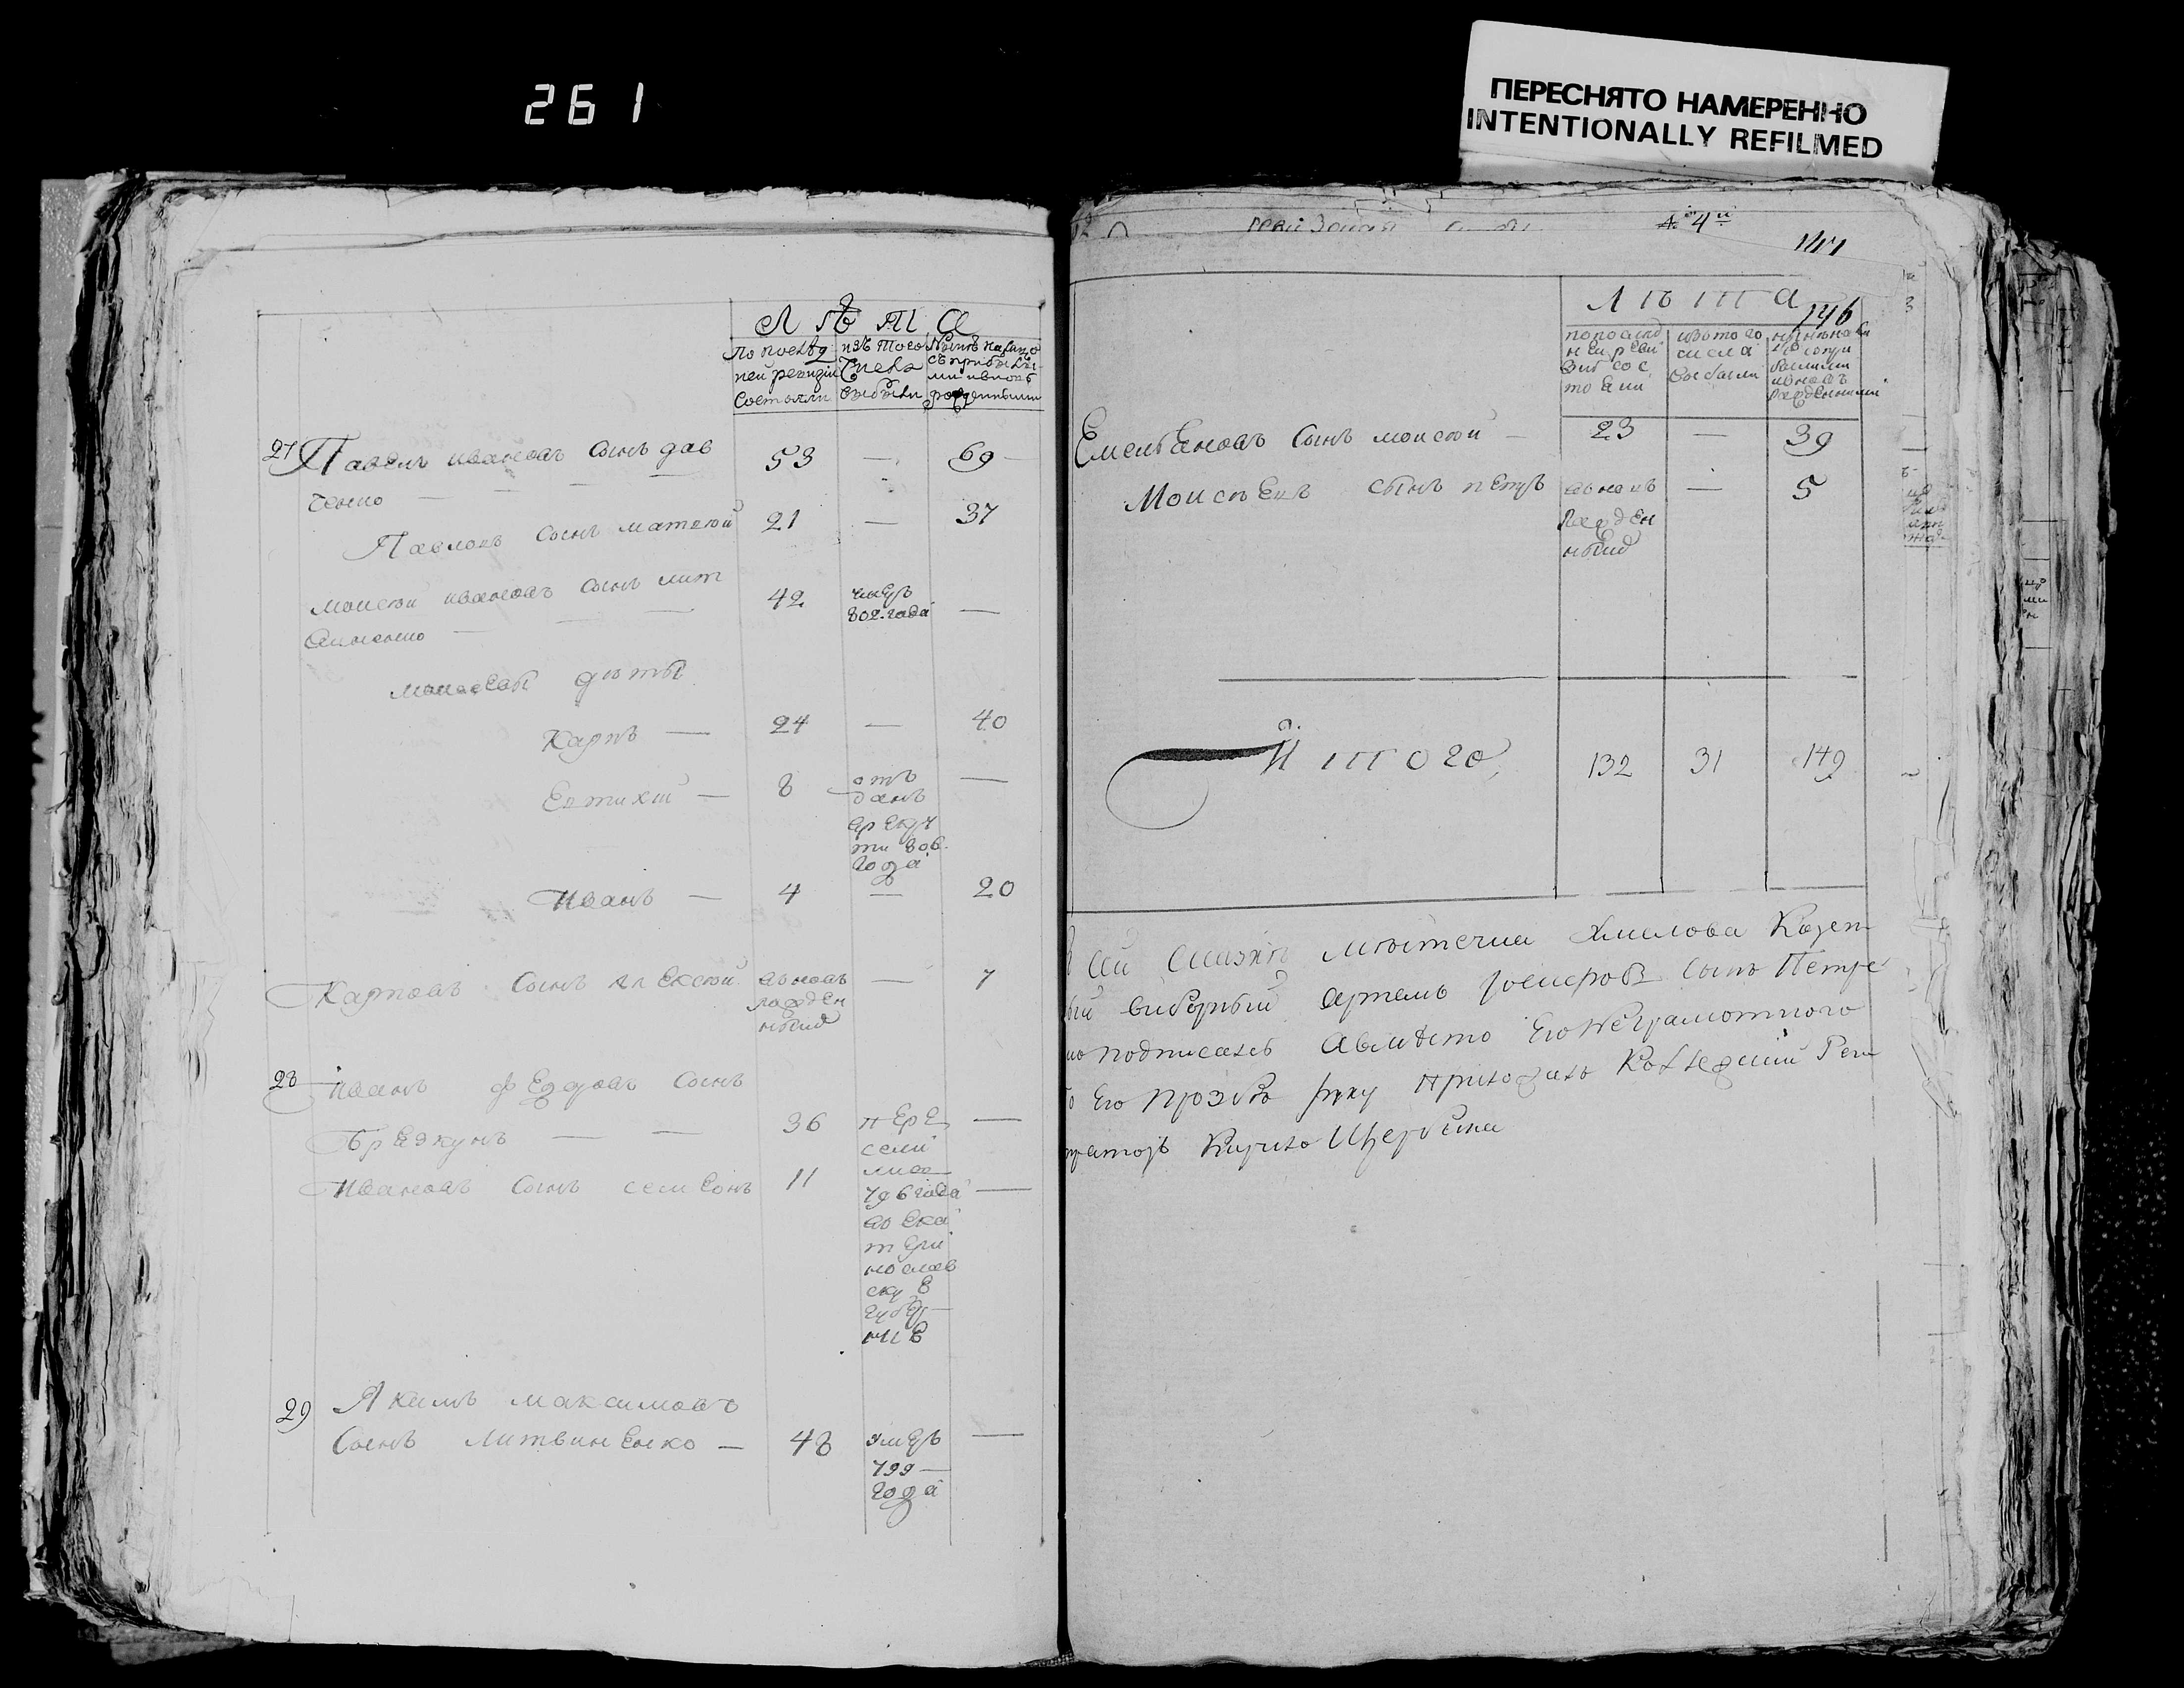 261
ПЕРЕСНЯТО НАМЕРЕННО
INTENTIONALLY REFILMED
Лѣта
По послѣд
ней ревизіи
Состояли
изъ того
Числа
выбыли
Нынѣ налицо
съ прибылы
ми и вновь
рожденными
27 Павелъ ивановъ сынъ дав 53 — 69
ченко
Павловъ сынъ матвѣй 21 — 37
Моисѣй ивановъ сынъ лит 42 умеръ —
802. года
виненко
Моисѣевы дѣты
Карпъ — 24 — 40
Евтихій — 8 отъ —
данъ
в рекру
ти 806.
года
Иванъ — 4 — 20
Карповъ сынъ алексѣй вновь — 7
рожден
ный
28 Иванъ федоровъ сынъ
Бредкунъ — — 36 пере —
сели
лися
Ивановъ сынъ семіонъ 11 796 года —
в ека
тери
нослав
ску
губер
ние
29 Якимъ максимовъ
сынъ литвиненко — 48 умеръ —
799
года
4й
146
Лѣта
по послед
ней реви
зиі сос
тояли
изъ того
числа
выбыли
прибылими
и вновь
рожденними
Емельяновъ сынъ моисей — 23 — 39
Моисѣевъ сынъ петръ вновь — 5
рожден
ный
Итого 132 31 149
Мѣстечка Хмелова Казен
виборный Артемъ сынъ Петре
подписалъ А вмѣсто его неграмотного
его прозбѣ руку приложилъ Колледжий Реги
страторъ Кирило Щербина